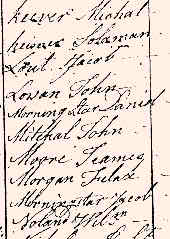 Keever Michal
Keever Solaman
Lout Jacob
Lowan John
Morning Star Daniel
Mitchal John
Moore Jeames
Morgan Felax
Morningstar Jacob
Noland